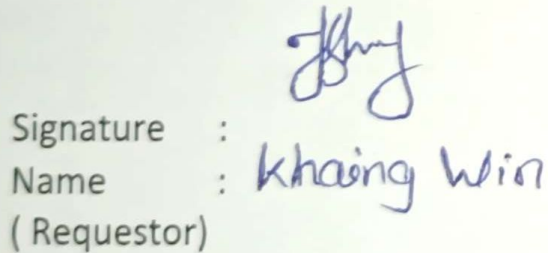 Signature :
Name : Khaing Win
( Requestor)